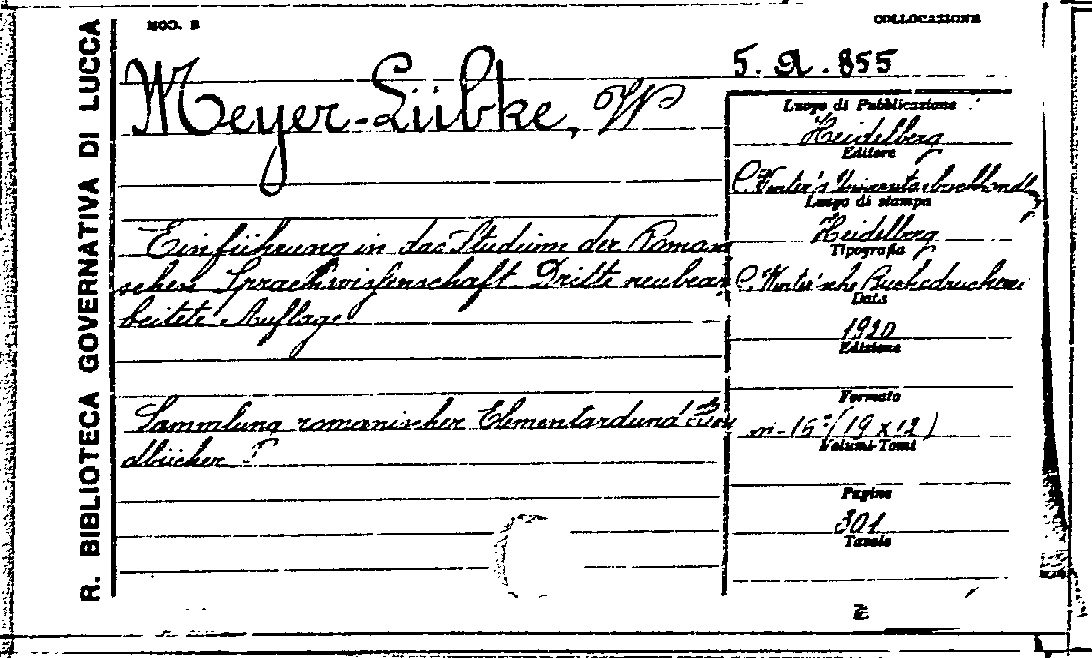 MOD. B
COLLOCAZIONE
R. BIBLIOTECA GOVERNATIVA DI LUCCA
5. A. 855
Meyer-Lübke, W
Luogo di Pubblicazione
Heidelberg
Editore
C. Winter's
Luogo di stampa
Heidelberg
Tipografia
C. Winter'sche
Data
1920
Edizione
Formato
in-16°(19 x 12)
Volumi-Tomi
Pagine
301
Tavole
Einführung in das Studium der Romani
schen Sprachwissenschaft Dritte neubear
beitete Auflage
Sammlung romanischer
dbücher